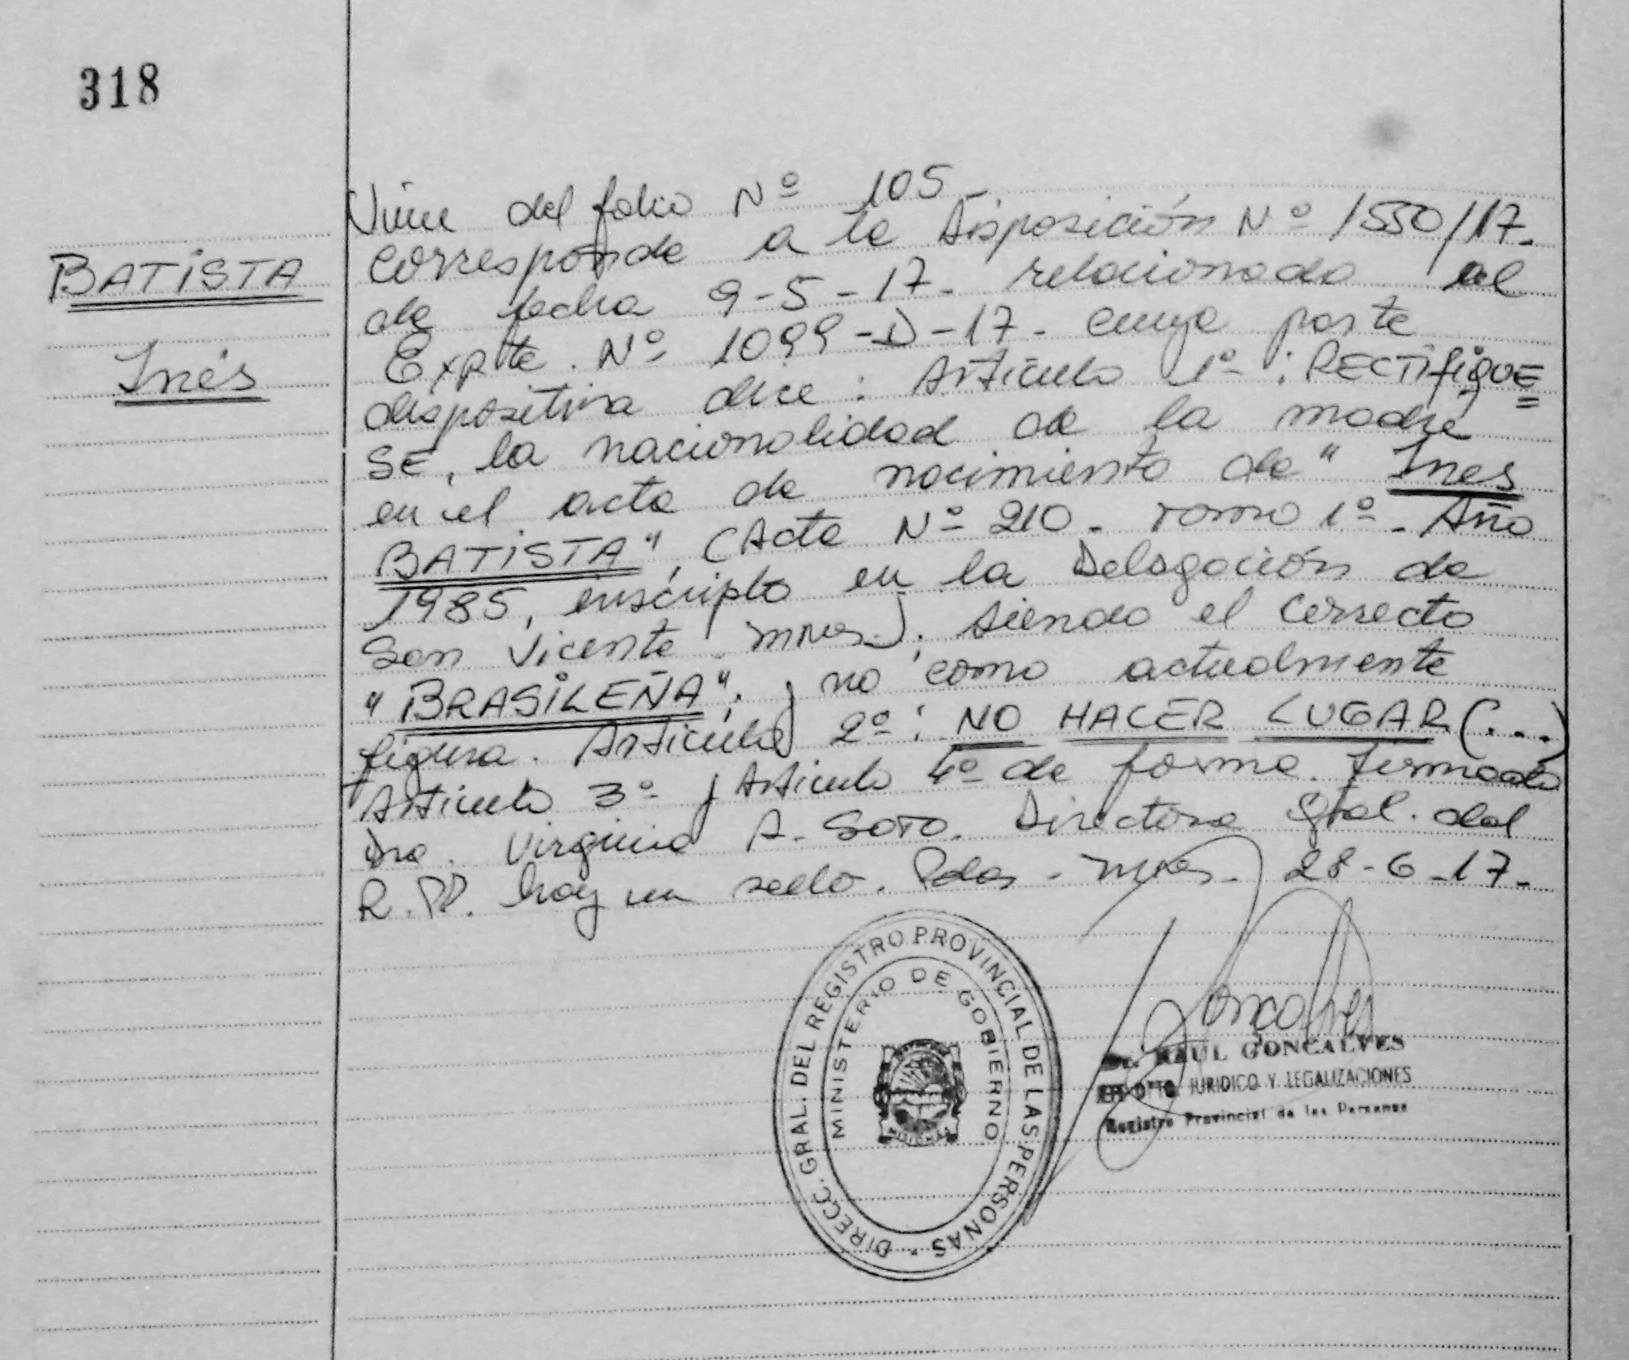 318
BATISTA
Inés
Viene del folio Nº 105-
Corresponde a la Disposición Nº 1550/17-
de fecha 9-5-17- relacionado al
Expte. Nº 1099-D-17- cuya parte
dispositiva dice: Artículo 1º: RECTIFIQUE=
SE, la nacionalidad de la madre
en el acta de nacimiento de "Ines
BATISTA", (Acta Nº 210- Tomo 1º- Año
1985, inscripto en la Delegación de
San Vicente Mnes.); siendo el correcto
"BRASILEÑA", y no como actualmente
figura. Artículo 2º: NO HACER LUGAR (...)
Artículo 3º y Artículo 4º de forma. Firmado
Dra. Virginia A. SOTO. Directora Gral. del
R.PP. hay un sello. Pdas- Mnes- 28-6-17-
DIRECC. GRAL. DEL REGISTRO PROVINCIAL DE LAS PERSONAS -
MINISTERIO DE GOBIERNO
MISIONES
Goncalves
Dr. RAUL GONCALVES
DPTO. JURIDICO Y LEGALIZACIONES
Registro Provincial de las Personas